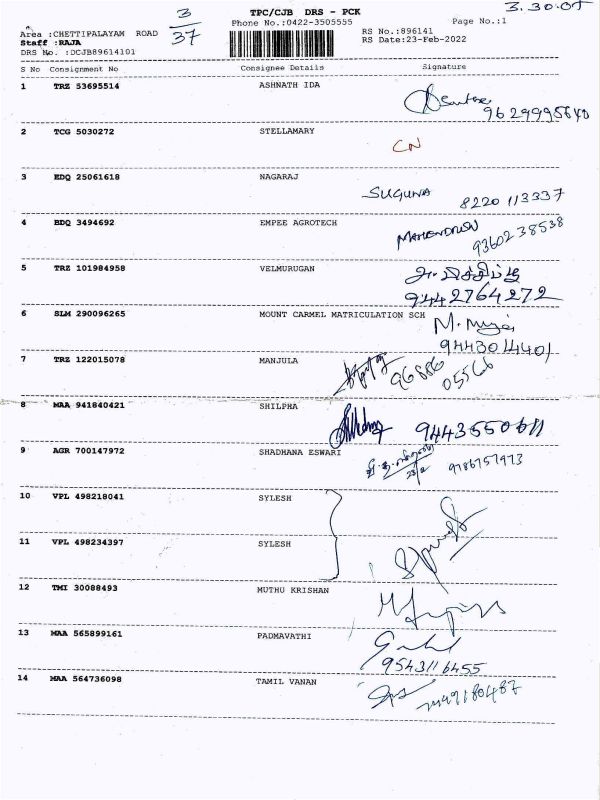 3
37
TPC/CJB DRS - PCK
3.30.05
Phone No.:0422-3505555
Page No.:1
Area :CHETTIPALAYAM ROAD
RS No.:896141
Staff :RAJA
RS Date:23-Feb-2022
DRS No. :DCJB89614101
S No Consignment No Consignee Details Signature
1 TRZ 53695514 ASHNATH IDA
9629995640
2 TCG 5030272 STELLAMARY
CN
3 EDQ 25061618 NAGARAJ
SUGUNA 8220113337
4 BDQ 3494692 EMPEE AGROTECH
9360238538
5 TRZ 101984958 VELMURUGAN
9442764272
6 SLM 290096265 MOUNT CARMEL MATRICULATION SCH
9443014401
7 TRZ 122015078 MANJULA
96886
05566
8 MAA 941840421 SHILPHA
9443550611
9 AGR 700147972 SHADHANA ESWARI
9786757973
10 VPL 498218041 SYLESH
11 VPL 498234397 SYLESH
12 TMI 30088493 MUTHU KRISHAN
13 MAA 565899161 PADMAVATHI
9543116455
14 MAA 564736098 TAMIL VANAN